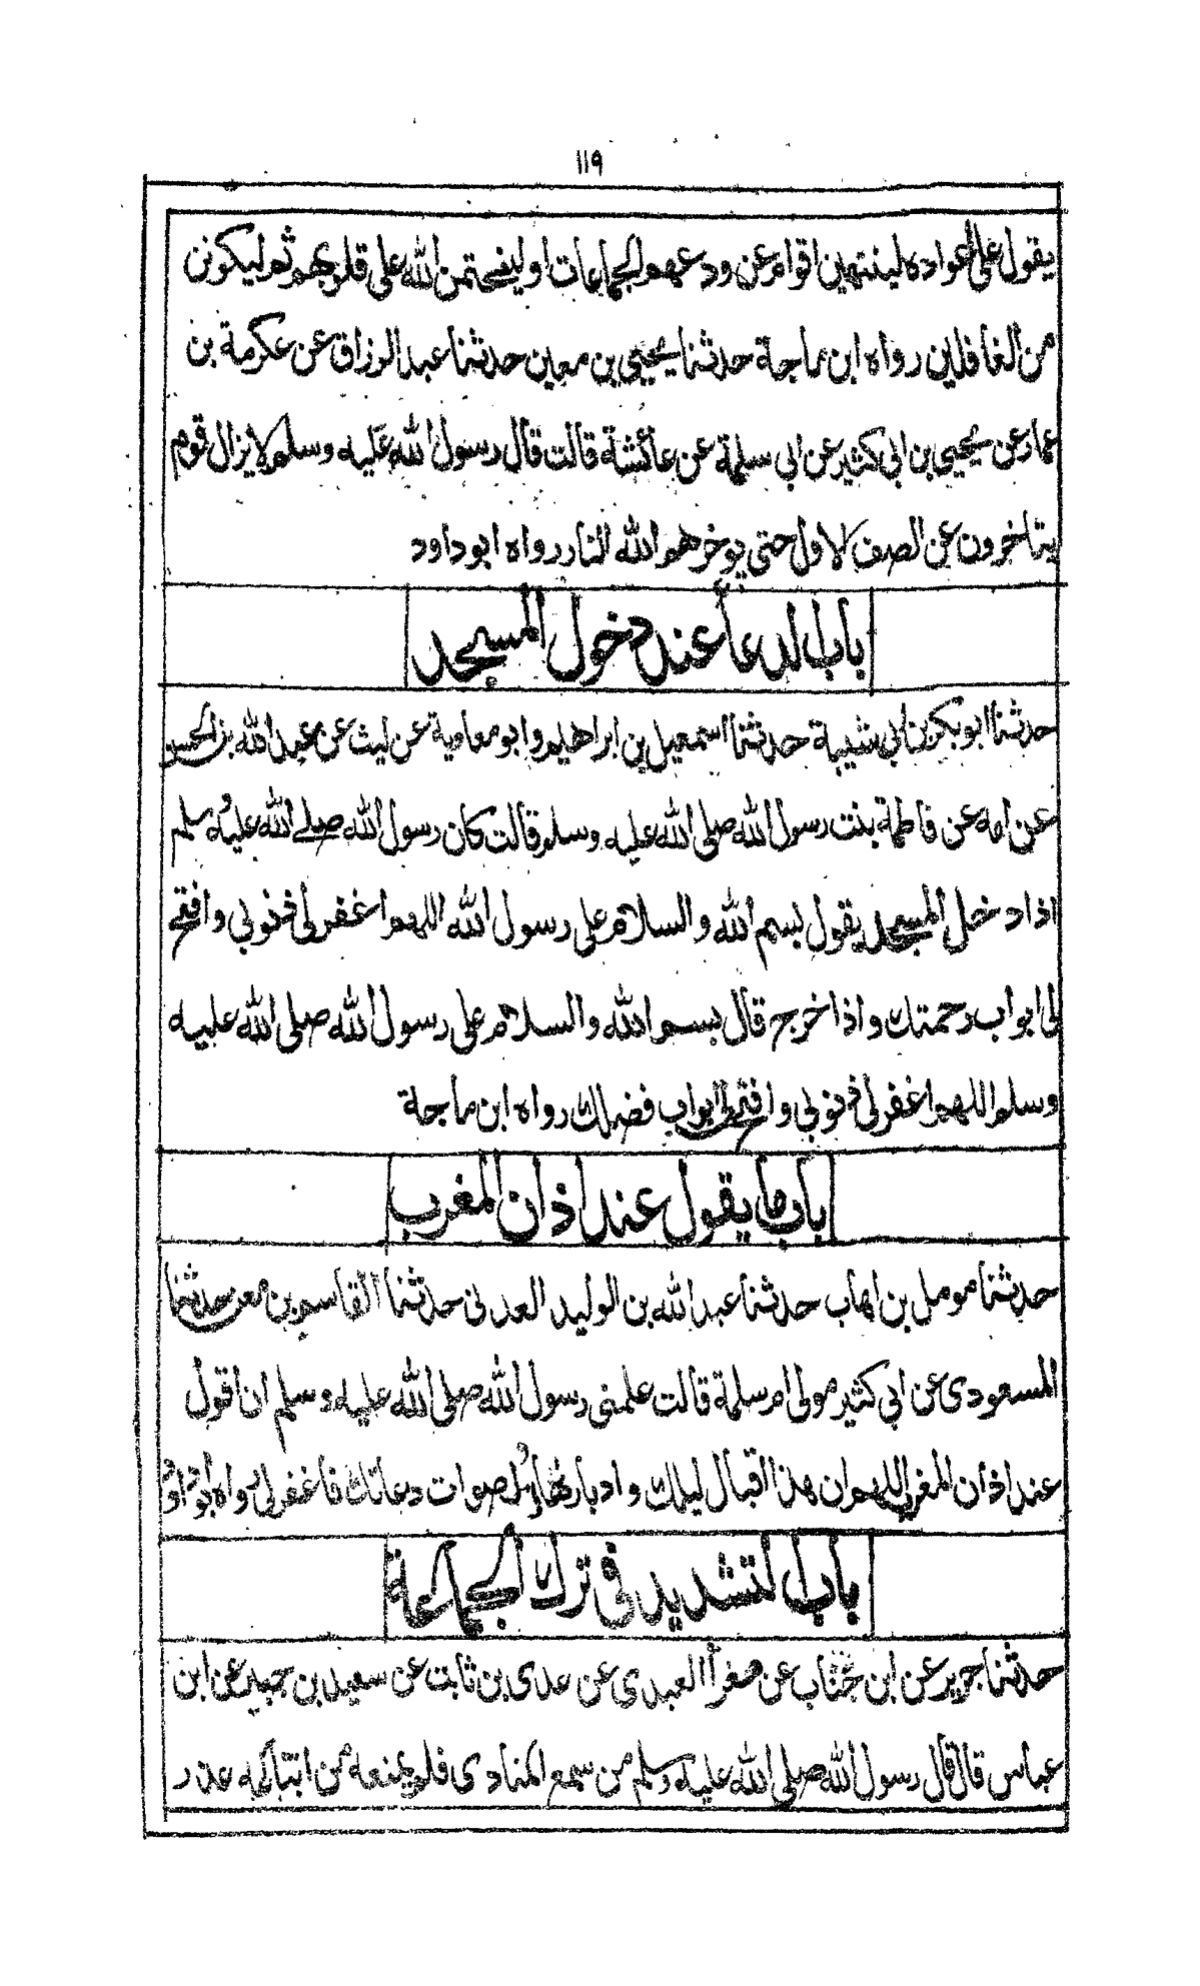 ١١٩
يقول على اعواده لينتهين اقوام عن ودعهم الجماعات او ليختمن الله على قلوبهم ثم ليكونن
من الغافلين رواه ابن ماجة حدثنا يحيي بن معين حدثنا عبد الرزاق عن عكرمة بن
عمار عن يحيي بن ابي كثير عن ابي سلمة عن عائشة قالت قال رسول الله عليه وسلم لا يزال قوم
يتاخرون عن الصف الاول حتى يوخرهم الله النار رواه ابو داود
باب الدعاء عند دخول المسجد
حدثنا ابو بكر بن ابي شيبة حدثنا اسمعيل بن ابراهيم وابو معاوية عن ليث عن عبد الله بن الحسن
عن امه عن فاطمة بنت رسول الله صلى الله عليه وسلم قالت كان رسول الله صلے الله عليه وسلم
اذا دخل المسجد يقول بسم الله والسلام على رسول الله اللهم اغفر لى ذنوبى وافتح
لى ابواب رحمتك واذا خرج قال بسم الله والسلام على رسول الله صلى الله عليه
وسلم اللهم اغفر لى ذنوبى وافتح لى ابواب فضلك رواه ابن ماجة
باب ما يقول عند اذان المغرب
حدثنا مومل بن اهاب حدثنا عبد الله بن الوليد العدنى حدثنا القاسم بن معن حدثنا
المسعودى عن ابي كثير مولى ام سلمة قالت علمنى رسول الله صلى الله عليه وسلم ان اقول
عند اذان المغرب اللهم ان هذا اقبال ليلك وادبار نهارك واصوات دعاتك فاغفر لى رواه ابو داود
باب التشديد فى ترك الجماعة
حدثنا جرير عن ابن جناب عن مغرأ العبدى عن عدى بن ثابت عن سعيد بن جبير عن ابن
عباس قال قال رسول الله صلى الله عليه وسلم من سمع المنادى فلم يمنعه من اتباعه عذر